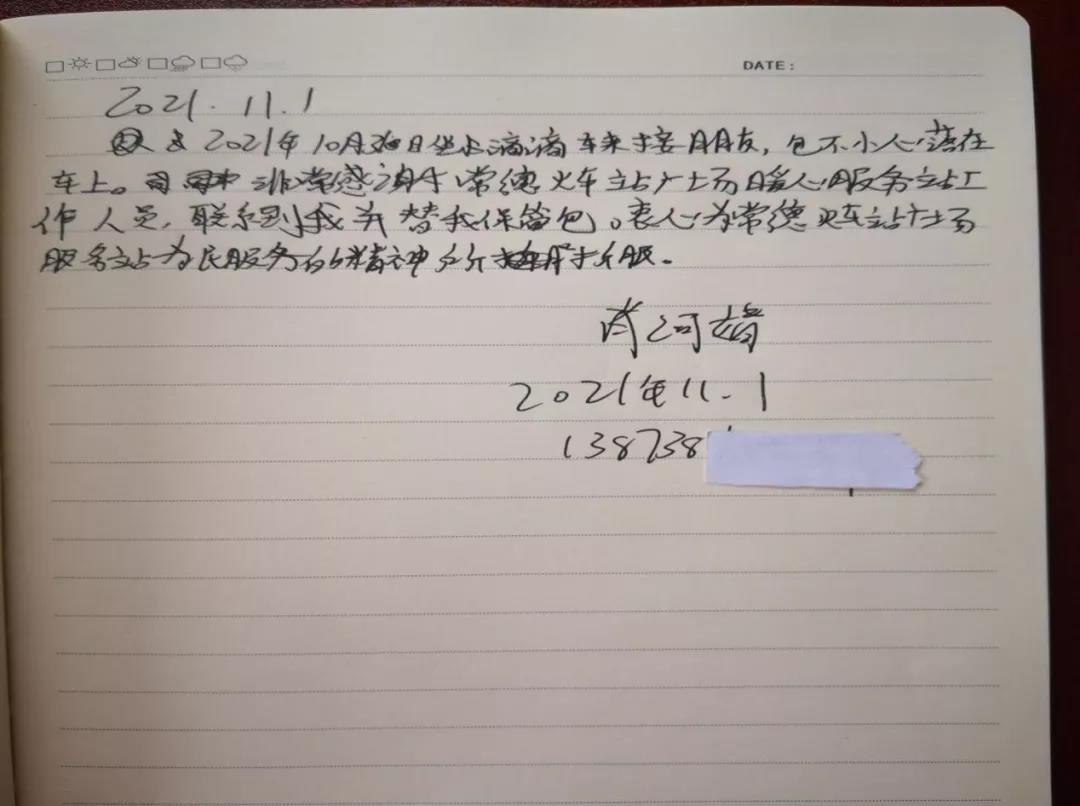 DATE：
2021.11.1
2021年10月30日坐上滴滴车来接朋友，包不小心落在
车上。非常感谢于常德火车站广场暖心服务站工
作人员，联系到我并替我保管包。衷心为常德火车站广场
服务站为民服务的精神所折服。
肖河婧
2021年11.1
138738